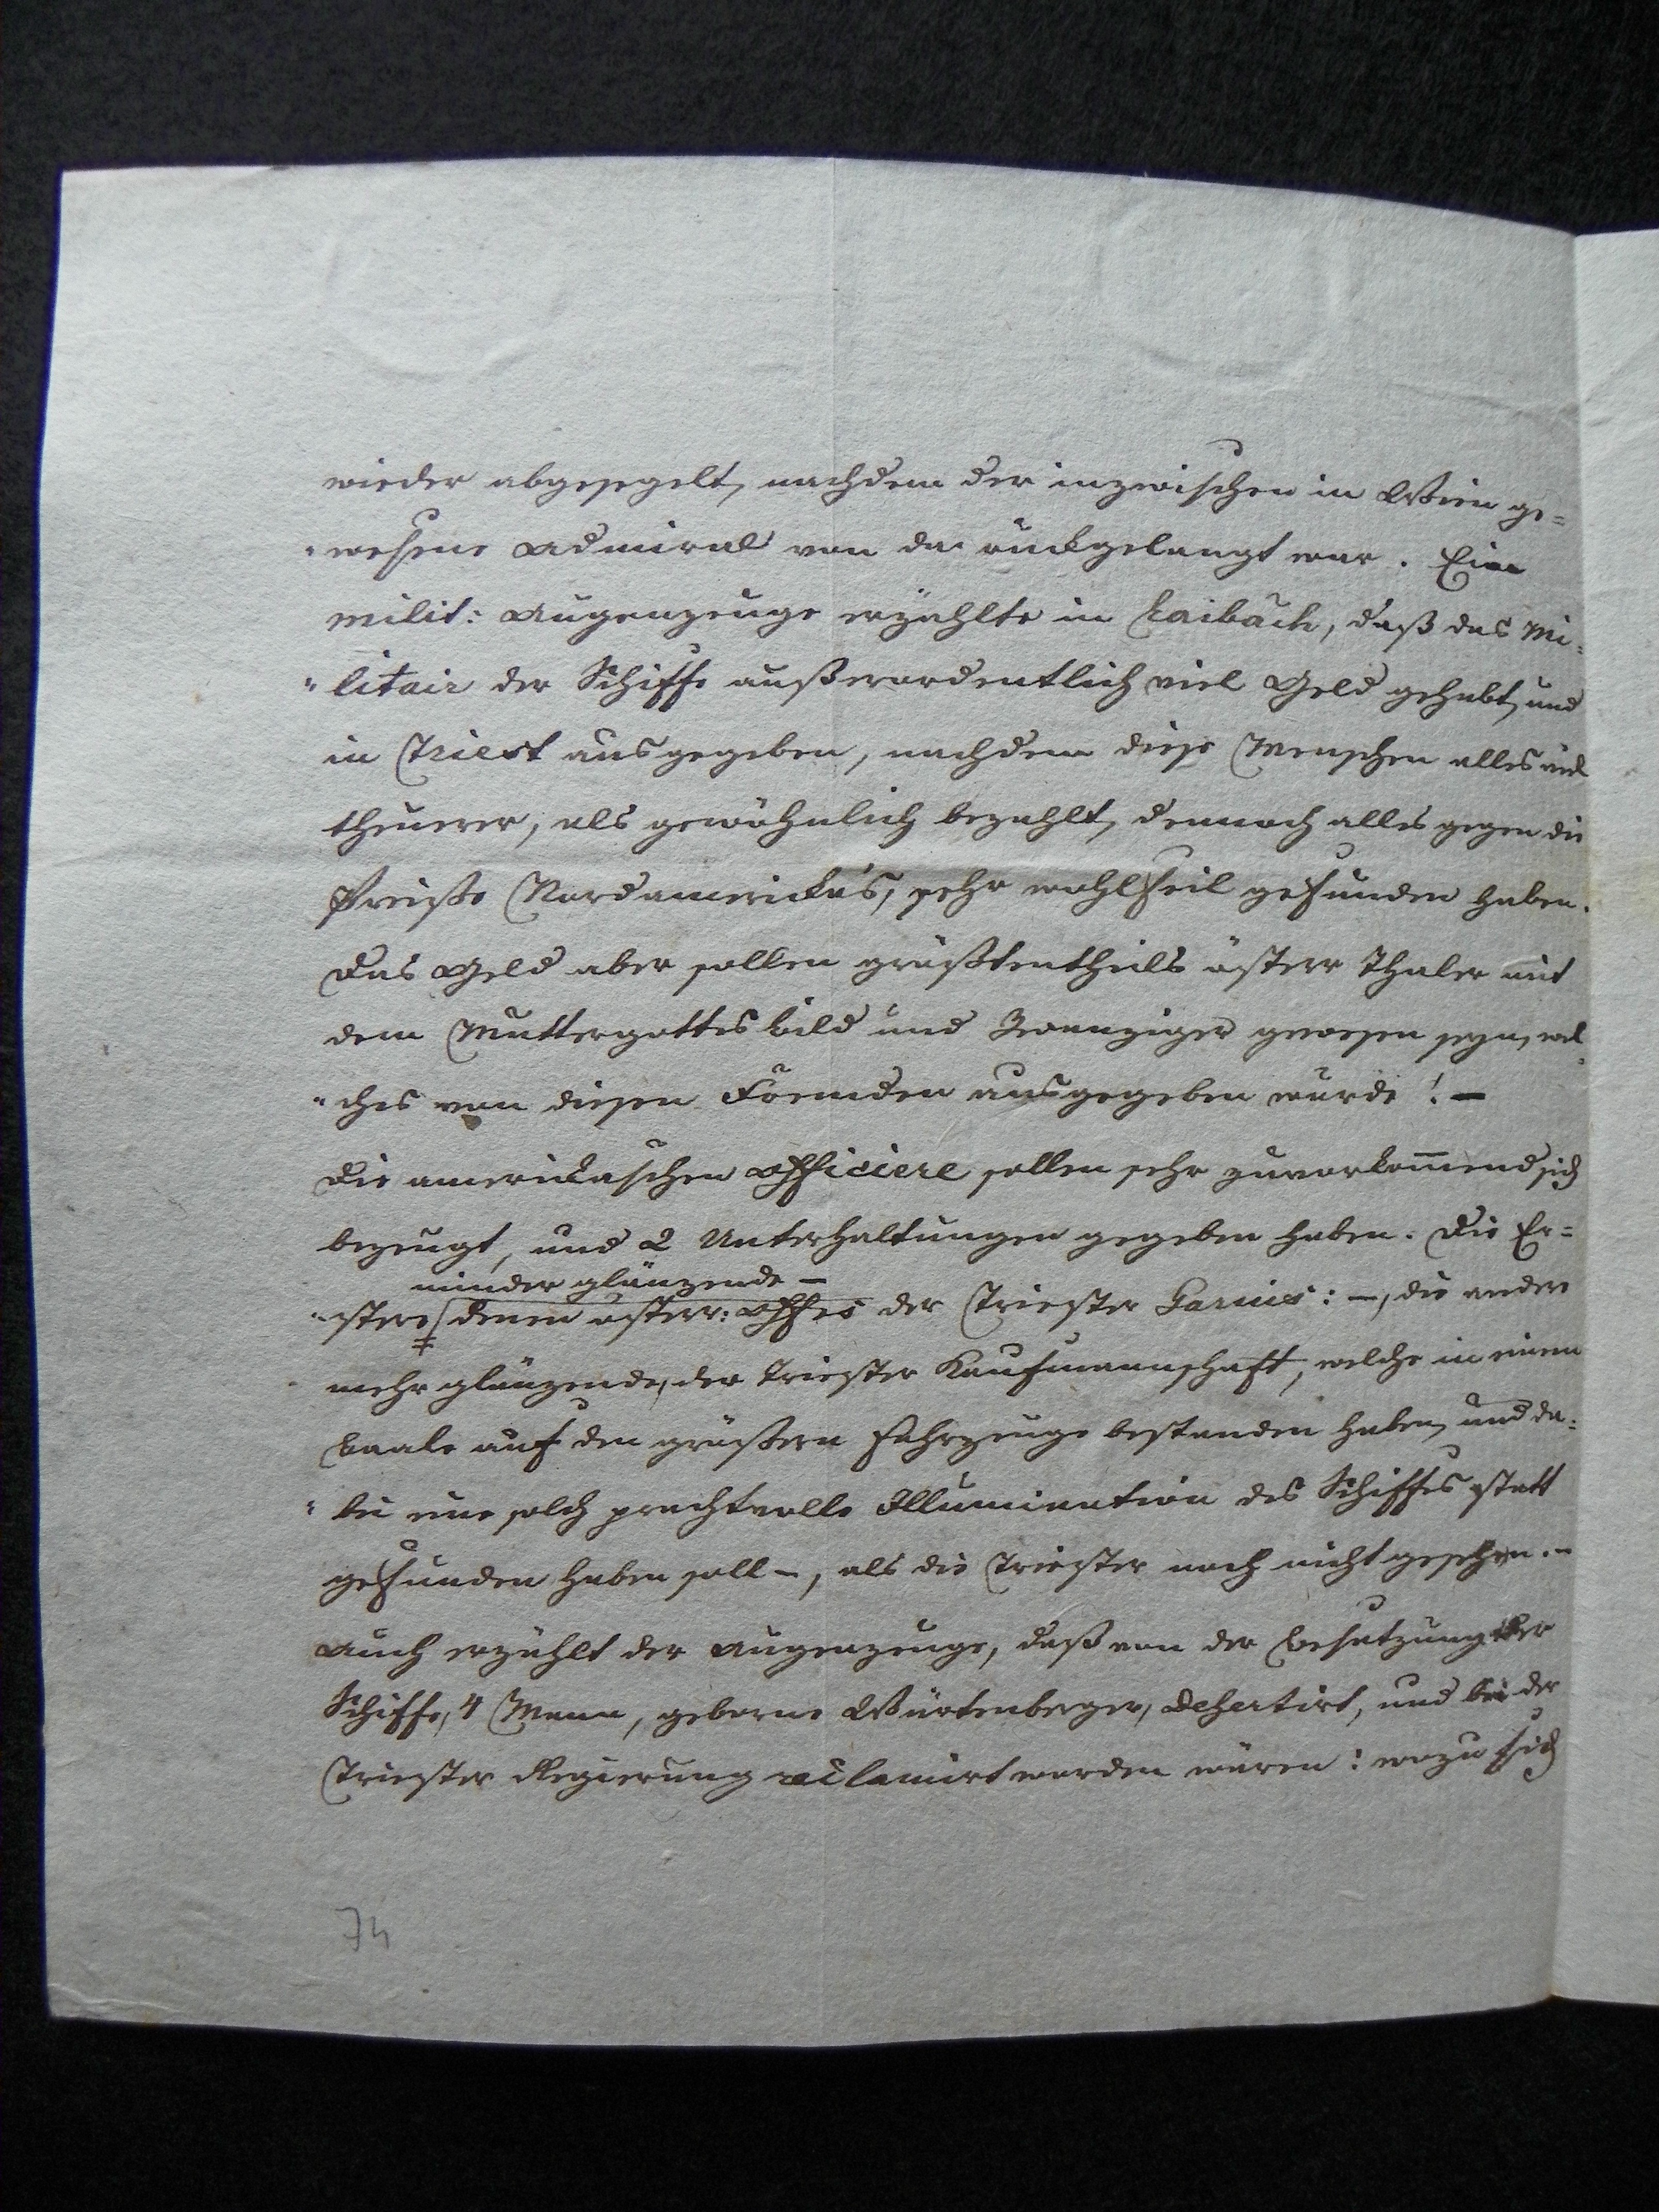 wieder abgesegelt, nachdem der inzwischen in Wien ge=
"wesene Admiral von da rückgelangt war. Ein
milit: Augenzeuge erzählte in Laibach, daß das Mi=
"litair der Schiffe außerordentlich viel Geld gehabt, und
in Triest ausgegeben, nachdem diese Menschen alles viel
theuerer, als gewöhnlich bezahlt, dennoch alles gegen die
Preiße Nordamericka's, sehr wohlfeil gefunden haben.
Das Geld aber sollen größtentheils österr Thaler mit
dem Muttergottesbild und Zwanziger gewesen seyn, wel=
"ches von diesen Fremden ausgegeben wurde! —
Die americkaschen Officiere sollen sehr zuvorkom̄end sich
bezeugt, und 2 Unterhaltungen gegeben haben. Die Er=
minder glänzende —
"stere denen österr: Offrs der Triester Garnis: —, die andere
mehr glänzende, der Triester Kaufmannschaft, welche in einem
Baale auf den größern Fahrzeuge bestanden haben, und da=
"bei eine solch prachtvolle Illumination des Schiffes statt
gefunden haben soll —, als die Triester noch nicht gesehen. —
Auch erzählt der Augenzeuge, daß von der Besatzung der
Schiffe, 4 Mann, geborne Würtenberger, desertirt, und bei der
Triester Regierung reclamirt worden wären: wozu sich
74